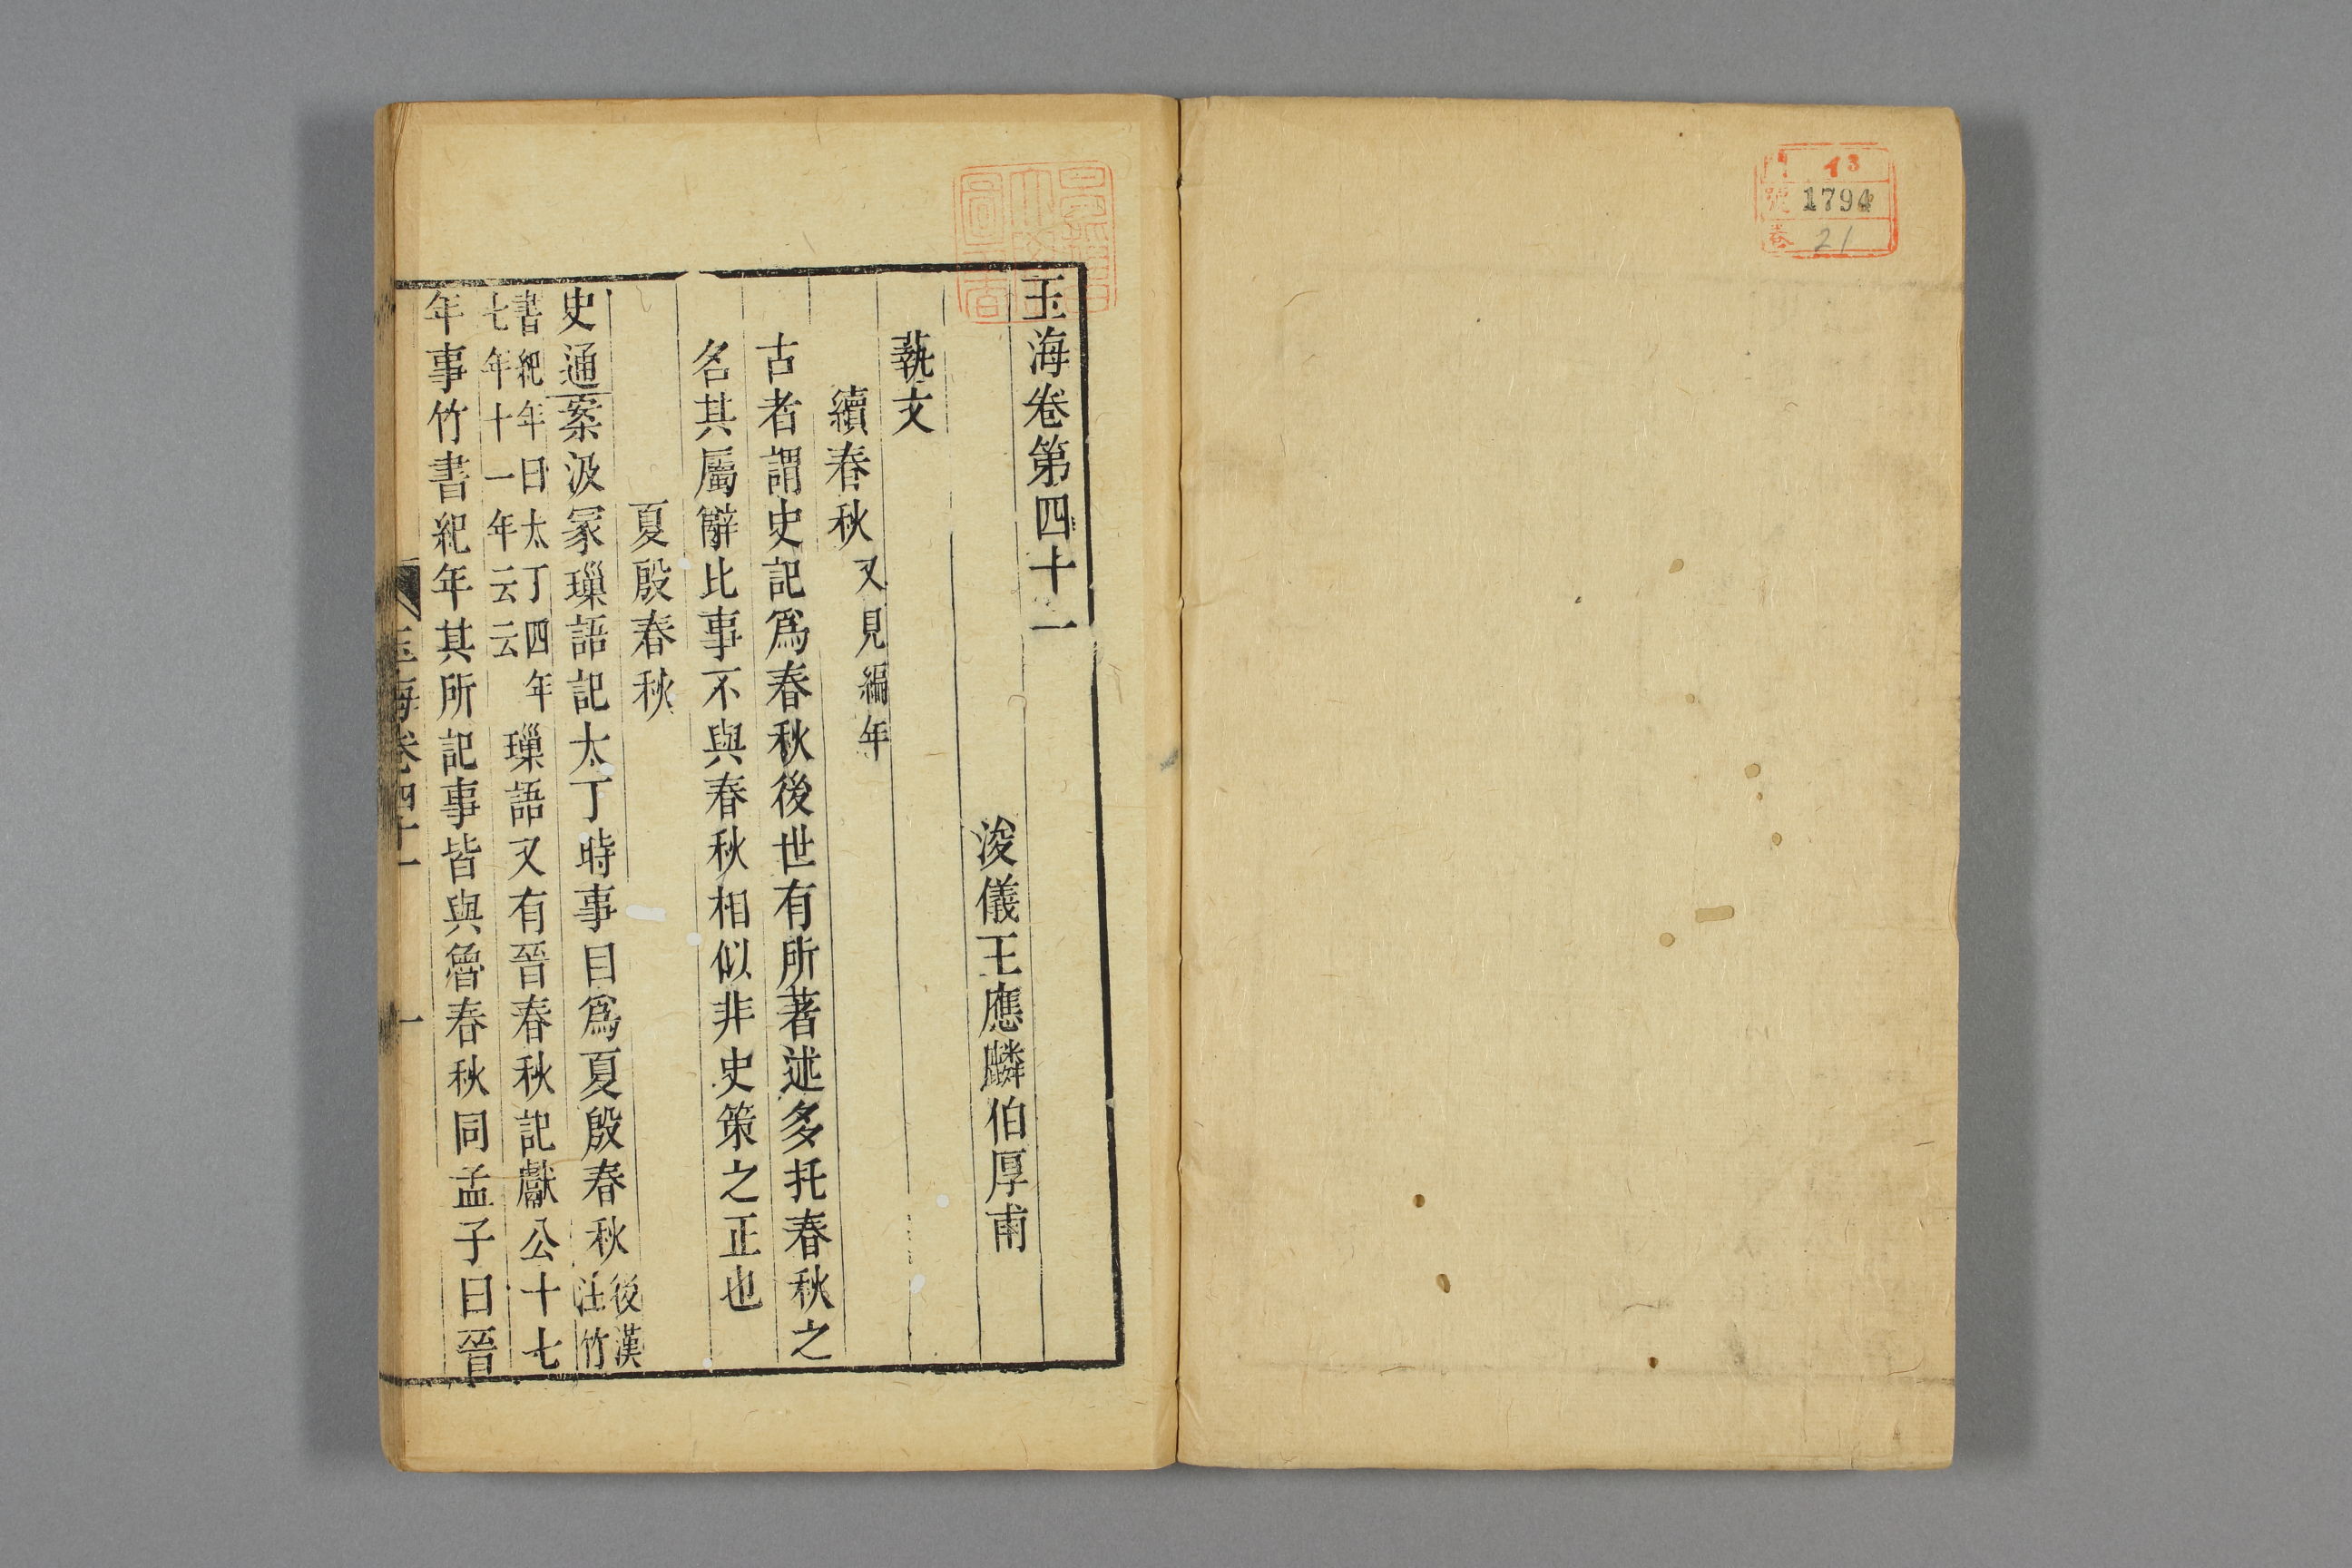 門 13
號 1794
卷 21
玉海卷第四十一
浚儀王應麟伯厚甫
藝文
續春秋 又見編年
古者謂史記爲春秋後世有所著述多托春秋之
名其屬辭比事不與春秋相似非史策之正也
夏殷春秋
史通案汲冢璅語記太丁時事目爲夏殷春秋 後漢
注竹
書紀年曰太丁四年
七年十一年云云
璅語又有晉春秋記獻公十七
年事竹書紀年其所記事皆與魯春秋同孟子曰晉
玉海卷四十一
一